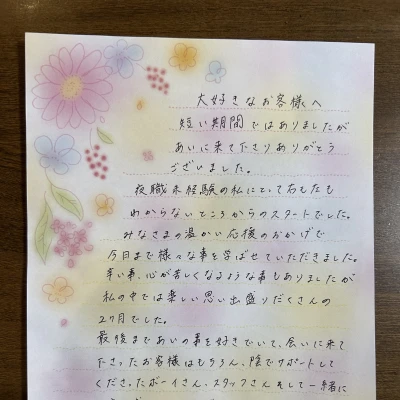 大好きなお客様へ
短い期間ではありましたが
あいに来て下さりありがとう
ございました。
夜職未経験の私にとって右も左も
わからないところからのスタートでした。
みなさまの温かい応援のおかげで
今日まで様々な事を学ばせていただきました。
辛い事、心が苦しくなるような事もありましたが
私の中では楽しい思い出盛りだくさんの
2ヶ月でした。
最後まであいの事を好きでいて、会いに来て
下さったお客様はもちろん、陰でサポートして
くださったボーイさん、スタッフさん そして一緒に